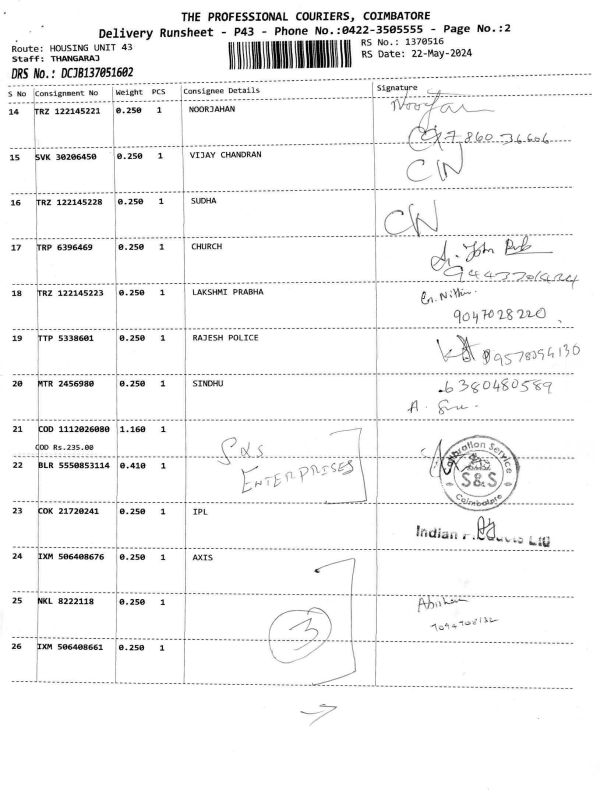 THE PROFESSIONAL COURIERS, COIMBATORE
Delivery Runsheet - P43 - Phone No.:0422-3505555 - Page No.:2
Route: HOUSING UNIT 43
RS No.: 1370516
Staff: THANGARAJ
RS Date: 22-May-2024
DRS No.: DCJB137051602
S No Consignment No Weight PCS Consignee Details Signature
14 TRZ 122145221 0.250 1 NOORJAHAN
15 SVK 30206450 0.250 1 VIJAY CHANDRAN CN
16 TRZ 122145228 0.250 1 SUDHA CN
17 TRP 6396469 0.250 1 CHURCH John
18 TRZ 122145223 0.250 1 LAKSHMI PRABHA
9047028220
19 TTP 5338601 0.250 1 RAJESH POLICE
20 MTR 2456980 0.250 1 SINDHU 6380480589
21 COD 1112026080 1.160 1
COD Rs.235.00 S&S
ENTERPRISES
Calibration Service
S&S
Coimbatore
22 BLR 5550853114 0.410 1
23 COK 21720241 0.250 1 IPL
Indian
24 IXM 506408676 0.250 1 AXIS
25 NKL 8222118 0.250 1
3
26 IXM 506408661 0.250 1